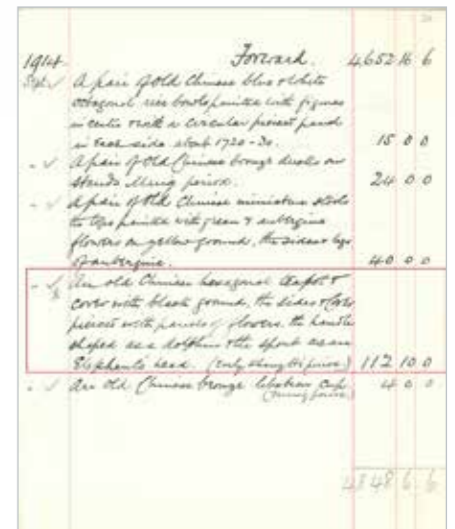 1914 Forward. 4652 16 6
Sept. A pair of old Chinese blue & white
octagonal rice bowls painted with figures
in centre & with a circular pierced panel
in each side about 1720-30. 15 0 0
A pair of Old Chinese bronze ducks on
stands Ming period. 24 0 0
A pair of Old Chinese miniature stools
the tops painted with green & aubergine
flowers on yellow ground, the sides & legs
of aubergine. 40 0 0
An old Chinese hexagonal teapot &
cover with black ground, the sides & cover
pierced with panels of flowers, the handle
shaped as a dolphin & the spout as an
Elephant's head. (early Khang Hi period.) 112 10 0
An old Chinese bronze libation cup 4 0 0
(Ming period.)
4848 6 6